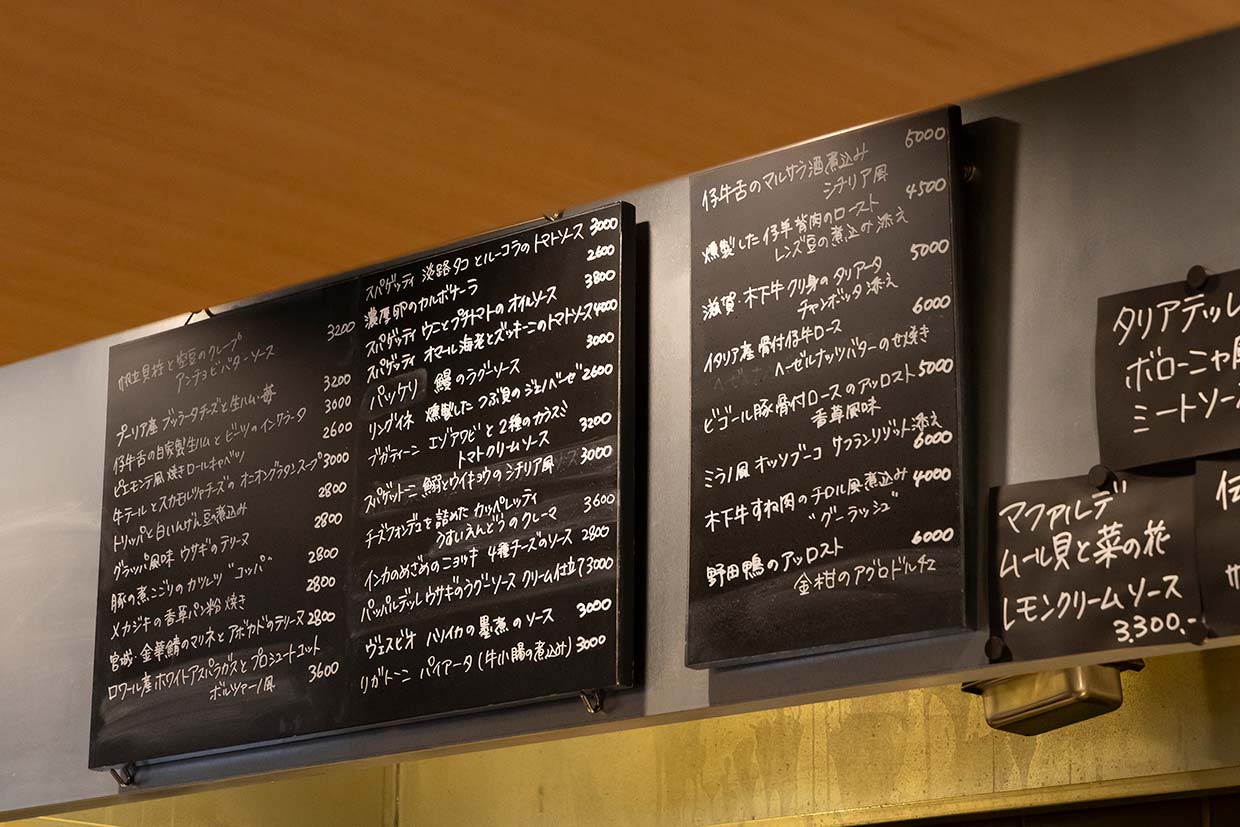 帆立貝柱と空豆のクレープ 3200
アンチョビバターソース
プーリア産ブッラータチーズと生ハム・苺 3200
仔牛舌の自家製生ハムとビーツのインサラータ 3000
ピエモンテ風焼きロールキャベツ 2600
牛テールとスカモルツァチーズのオニオングラタンスープ 3000
トリッパと白いんげん豆の煮込み 2800
グラッパ風味 ウサギのテリーヌ 2800
豚の煮こごりのカツレツ "コッパ" 2800
メカジキの香草パン粉焼き 2800
宮城・金華鯖のマリネとアボカドのテリーヌ 2800
ロワール産ホワイトアスパラガスとプロシュートコット 3600
ボルツァーノ風
スパゲッティ 淡路タコとルーコラのトマトソース 3000
濃厚卵のカルボナーラ 2600
スパゲッティ ウニとプチトマトのオイルソース 3800
スパゲッティ オマール海老とズッキーニのトマトソース 4000
パッケリ 鰻のラグーソース 3000
リングイネ 燻製したつぶ貝のジェノベーゼ 2600
ブガティーニ エゾアワビと2種のカラスミ 3200
トマトクリームソース
スパゲットーニ 鰯とウイキョウのシチリア風 3000
チーズフォンデュを詰めたカッペレッティ 3600
うすいえんどうのクレーマ
インカのめざめのニョッキ 4種チーズのソース 2800
パッパルデッレ ウサギのラグーソース クリーム仕立て 3000
ヴェスビオ バリイカの墨煮のソース 3000
リガトーニ パイアータ(牛小腸の煮込み) 3000
仔牛舌のマルサラ酒煮込み 5000
シチリア風
燻製した仔羊背肉のロースト 4500
レンズ豆の煮込み添え
滋賀・木下牛クリ身のタリアータ 5000
チャンボッタ添え
イタリア産骨付仔牛ロース 6000
ヘーゼルナッツバターのせ焼き
ビゴール豚骨付ロースのアッロスト 5000
香草風味
ミラノ風オッソブーコ サフランリゾット添え
6000
木下牛すね肉のチロル風煮込み 4000
"グーラッシュ"
野田鴨のアッロスト 6000
金柑のアグロドルチェ
タリアテッレ
ボローニャ風
ミートソース
マファルデ
ムール貝と菜の花
レモンクリームソース
3,300.-